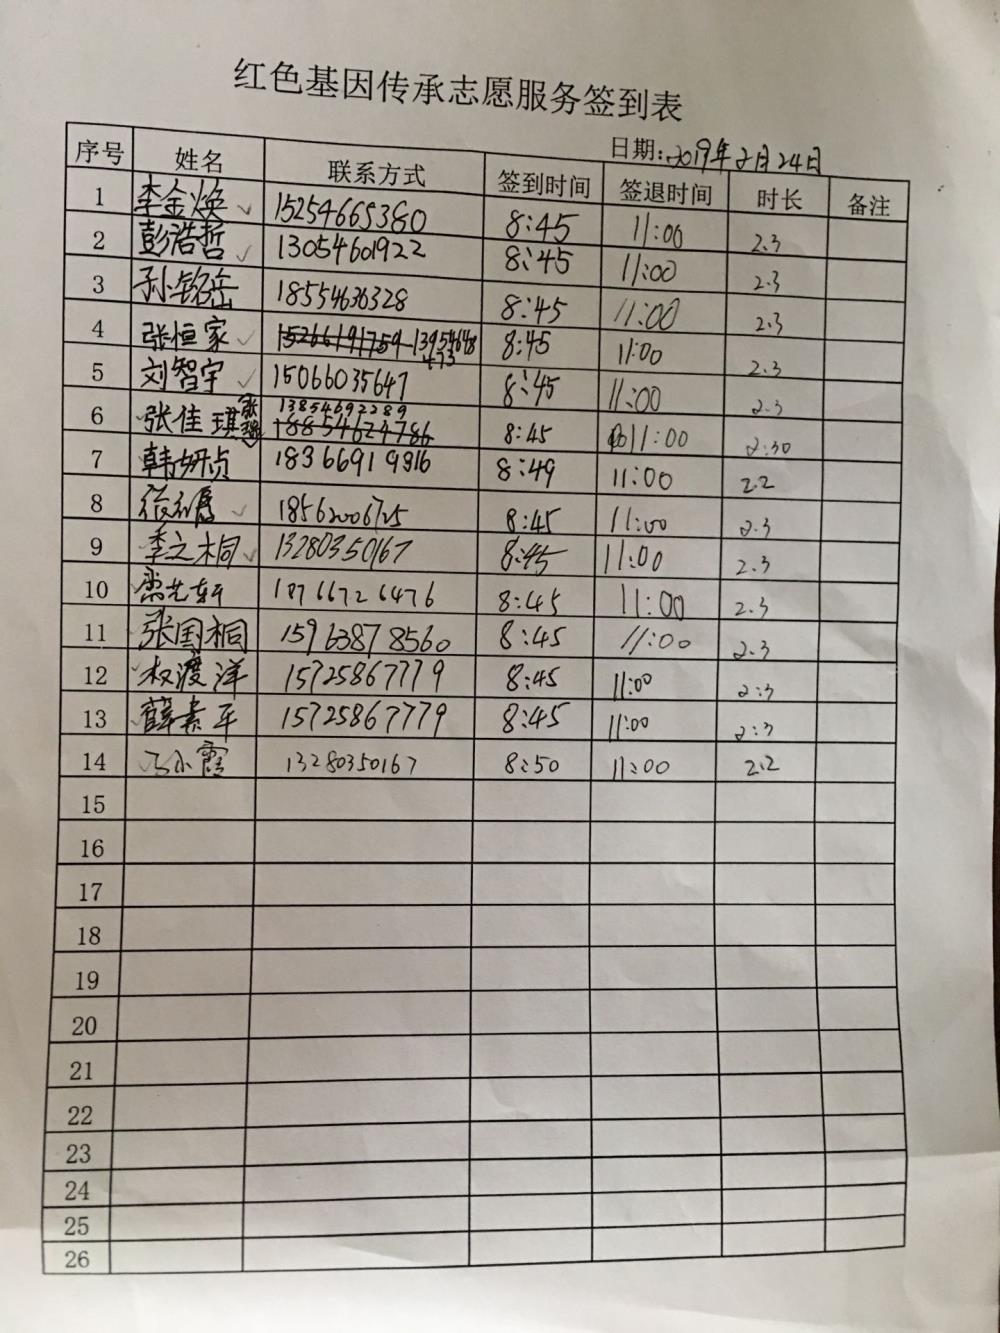 红色基因传承志愿服务签到表
日期:2019年2月24日
序号 姓名 联系方式 签到时间 签退时间 时长 备注
1 李金焕 15254665380 8:45 11:00 2.3
2 彭浩哲 13054601922 8:45 11:00 2.3
3 孙铭岳 18554636328 8:45 11:00 2.3
4 张恒家 15266191759 13954648473 8:45 11:00 2.3
5 刘智宇 15066035647 8:45 11:00 2.3
6 张佳琪 13854692289 18854624786 8:45 11:00 2:30
7 韩妍贞 18366919316 8:49 11:00 2.2
8 18562006725 8:45 11:00 2.3
9 季之桐 13280350167 8:45 11:00 2.3
10 18766726476 8:45 11:00 2.3
11 张国桐 15963878560 8:45 11:00 2.3
12 权渡洋 15725867779 8:45 11:00 2:3
13 薛素平 15725867779 8:45 11:00 2:3
14 小霞 13280350167 8:50 11:00 2.2
15
16
17
18
19
20
21
22
23
24
25
26